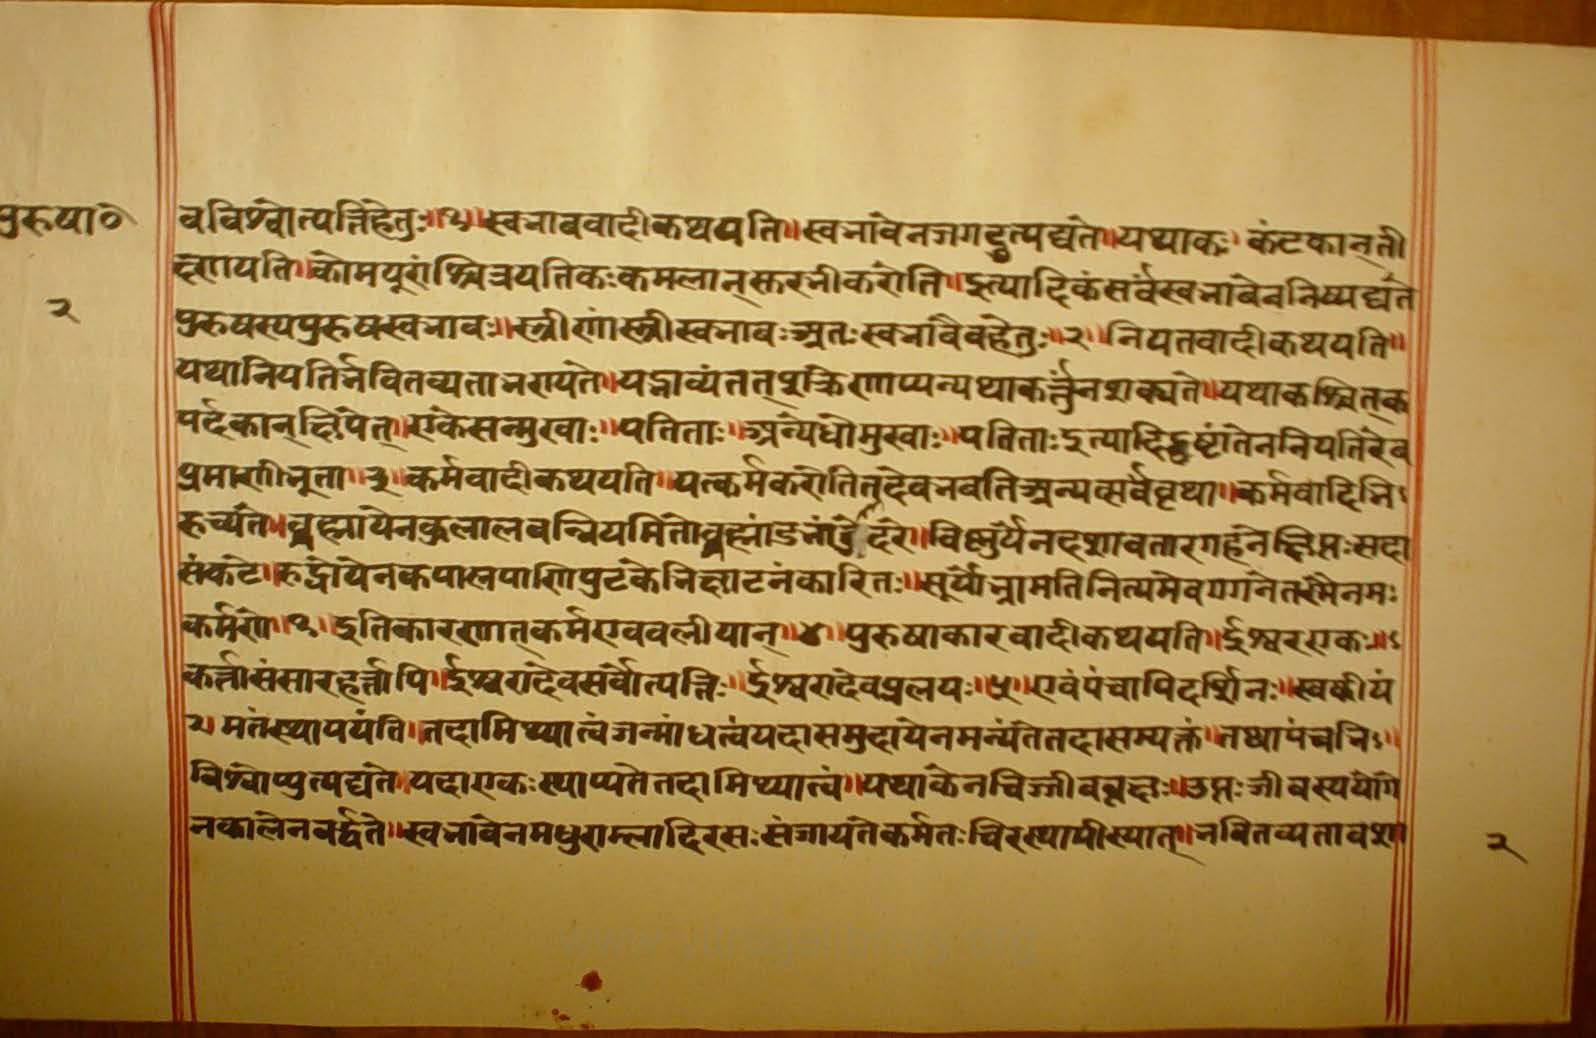 पुरुषा०
२
वविश्वोत्पत्तिहेतुः॥१॥स्वभाववादीकथयति॥स्वभावेनजगदुत्पद्यते॥यथाकः कंटकान्ती
क्ष्णयति॥कोमयूरांश्चित्रयतिकःकमलान्सुरभीकरोति॥इत्यादिकंसर्वंस्वभावेननिष्पद्यते
पुरुषस्यपुरुषस्वभावः॥स्त्रीणांस्त्रीस्वभावःअतःस्वभावैवहेतुः॥२॥नियतवादीकथयति॥
यथानियतिर्भवितव्यताभरायते॥यद्भाव्यंतत्शक्रिणाप्यन्यथाकर्त्तुंनशक्यते॥यथाकश्चित्क
पर्दकान्क्षिपेत्॥एकेसन्मुखाः॥पतिताः॥अन्येधोमुखाः॥पतिताःइत्यादिदृष्टांतेननियतिरेव
प्रमाणीभूता॥३॥कर्मवादीकथयति॥यत्कर्मकरोतितदेवभवतिअन्यत्सर्वंवृथा॥कर्मवादिनि
रुच्यते॥ब्रह्मायेनकुलालवन्नियमितोब्रह्मांडभांडोदरे॥विष्णुर्येनदशावतारगहनेक्षिप्तःसदा
संकटे॥रुद्रोयेनकपालपाणिपुटकेभिक्षाटनंकारितः॥सूर्योभ्रामतिनित्यमेवगगनेतस्मैनमः
कर्मणे॥१॥इतिकारणात्कर्मएवबलीयान्॥४॥पुरुषाकारवादीकथयति॥ईश्वरएकः॥
कर्त्तासंसारहर्त्तापि॥ईश्वरादेवसर्वोत्पत्तिः॥ईश्वरादेवप्रलयः॥५॥एवंपंचापिदर्शिनः॥स्वकीयं
२मतंस्थापयंति॥तदामिथ्यात्वंजन्मांधत्वंयदासमुदायेनमन्यंतेतदासम्यक्तं॥तथापंचभि
विश्वोप्युत्पद्यते॥यदाएकःस्थाप्यतेतदामिथ्यात्वं॥यथाकेनचिज्जीववृक्षः॥उप्तःजीवस्ययोगे
नकालेनवर्द्धते॥स्वभावेनमधुराम्लादिरसःसंजायतेकर्मतःचिरस्थायीस्यात्॥भवितव्यतावशा
२